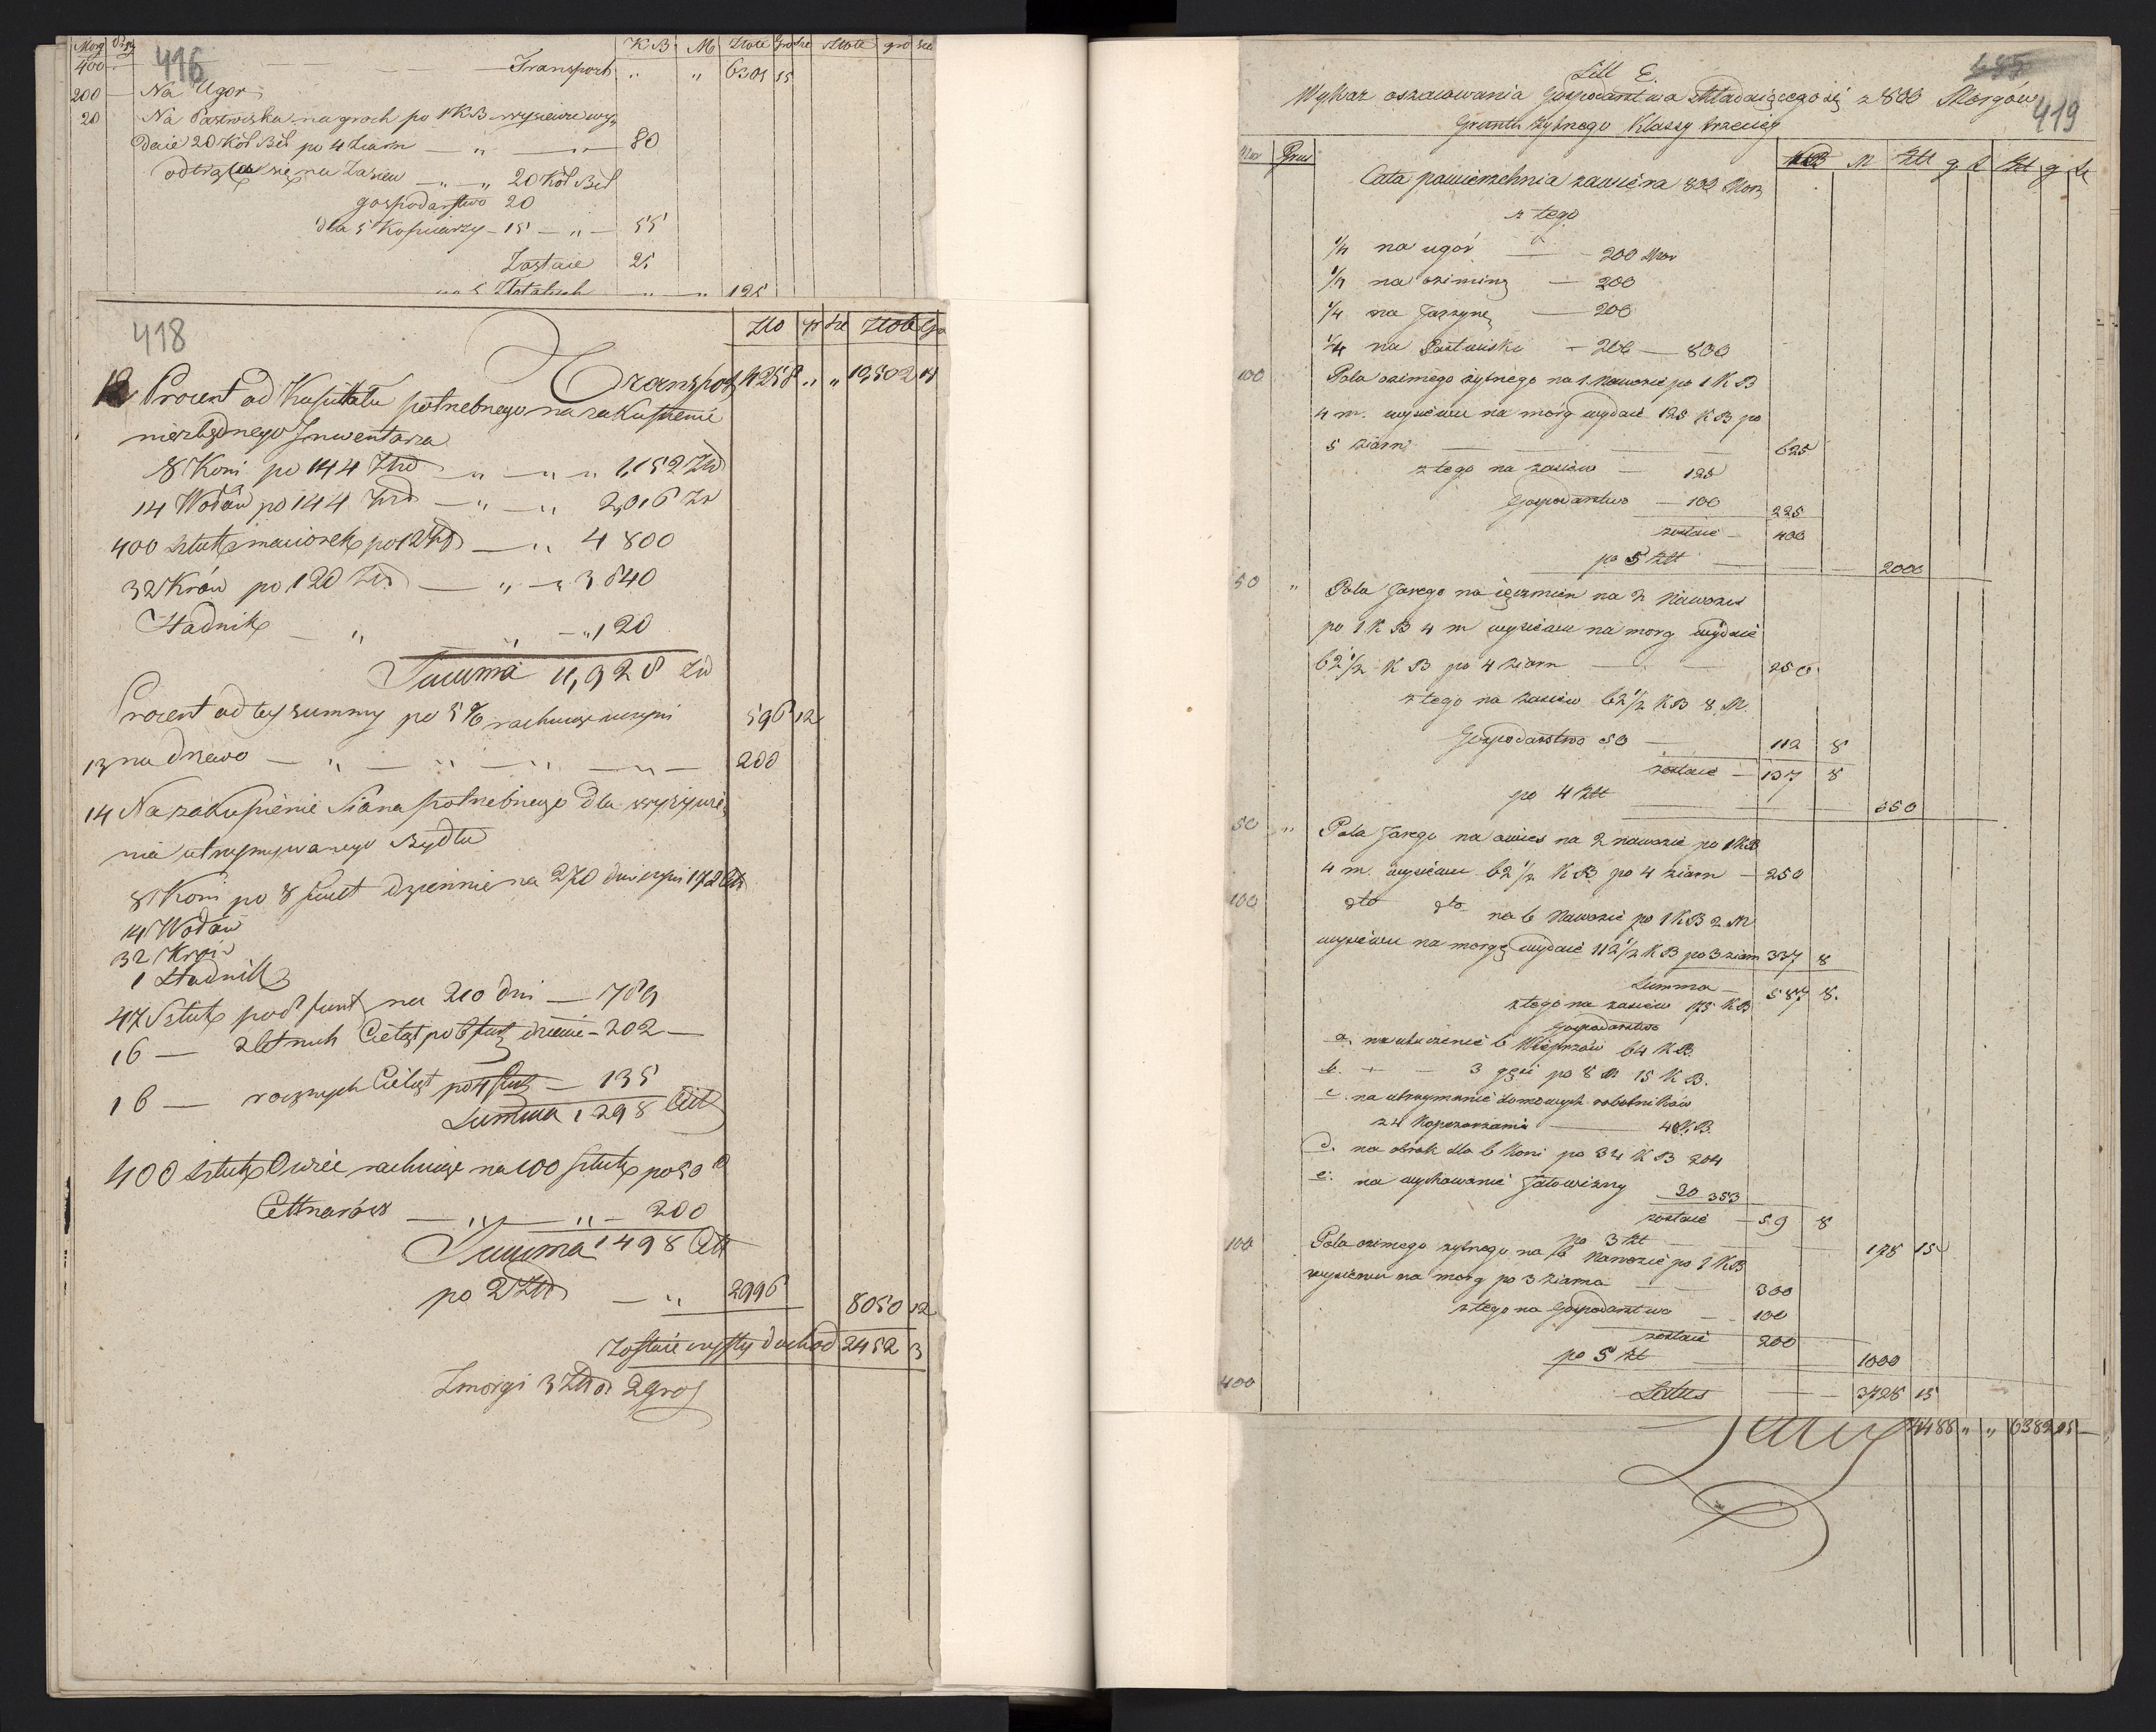 416
Morg Prę K B M Złote Grosze Złote gro sze
400 Transport " " 6301 15
200 Na Ugor
20 Na Pastwisku na groch po 1 KB wysiewu wy„
daie 20 Kor Ber po 4 Ziarn — " — 80
odtrąca się na Zasiew — " — " 20 Kor Ber
gospodarstwo 20
dla 5 Kopiarzy — 15 — " — 55
Zostaie 25
po 5 Złotalisch — " — " 125
418
Zło gr sze Złote Gro
Transport 4258 " " 10,502 15
12 Procent od Kapitału potrzebnego na zakupienie
niezbędnego Inwentarza
8 Koni po 144 Złp — " — " — " 1,152 Złp
14 Wołów po 144 Złp — " — " 2,016 Zł
400 sztuk maciorek po 12 Złp — " 4 800
32 Krów po 120 Złp — " — " 3 840
Stadnik — " " — " 120
Summa 11,928 Złp
Procent od tej summy po 5 % rachując uczyni 596 12
13 na drzewo — " — " — " — " — 200
14 Na zakupienie Siana potrzebnego dla wyżywie„
nia utrzymywanego Bydła
8 Koni po 8 funt dziennie na 270 dni czyni 172 Cet
14 Wołów
32 Krów
1 Stadnik
47 Sztuk po 8 funt na 210 dni — 789
16 — 2letnich Cieląt po 6 funt dziennie — 202 —
16 — rocznych Cieląt po 4 funt — 135
Summa 1298 Cet
400 sztuk Owiec rachując na 100 sztuk po 50
Cettnarów — " — " — 200
Summa 1498 Cet
po 2 Złp — " 2996 8050 12
Zostaie czysty dochod 2452 3
Z morgi 3 Złp 2 gros
685
419
Litt E.
Wykaz oszacowania Gospodarstwa składaiącego się z 800 Morgów
Gruntu żytnego Klassy trzeciey
Mor Pręt KB M Złt g s Złt g s
Cała powierzchnia zawiera 800 Mor
z tego
1/4 na ugór — 200 Mor
1/4 na oziminę — 200
1/4 na Jarzynę — 200
1/4 na Pastwiski — 200 — 800
100 Pola ozimego żytnego na 1. Nawozie po 1 K B
4 m. wysiewu na mórg wydaie 125 K B po
5 ziarn — 625
z tego na zasiew — 125
Gospodarstwo — 100 225
zostaie — 400
po 5 Złt — 2000
50 " Pola Jarego na ięczmien na 2 Nawozie
po 1 K B 4 m wysiewu na morg wydaie
62 1/2 K B po 4 ziarn — 250
z tego na zasiew 62 1/2 K B 8. M.
Gospodarstwo 50 — 112 8
zostaie — 137 8
po 4 Złt — 550
50 " Pola Jarego na owies na 2 nawozie po 1 KB
4 m. wysiewu 62 1/2 K B. po 4 ziarn — 250
100 dto dto na 6 Nawozie po 1 K B 2 M
wysiewu na morgę wydaie 112 1/2 K B po 3 ziarn 337 8
Summa — 587 8.
z tego na zasiew 175 K B
Gospodarstwo
a. na utuczenie 6 Wieprzów 64 K B.
b. + — 3 gęsi po 8 M 15 K B.
c. na utrzymanie domowych robotników
z 4 Kopczarzami — 40 K.B.
d. na obrok dla 6 Koni po 34 K B 204
e. na wychowanie Jałowizny 30 353
zostaie — 59 8
po 3 Złt — 178 15
100 Pola ozimego żytnego na 6 Nawozie po 1 K B
wysiewu na morg po 3 Ziarna — 300
z tego na Gospodarstwo — 100
zostaie 200
po 5 Zł — 1000
400 Latus — 3728 15
Latus 4488 " " 6382 15 —